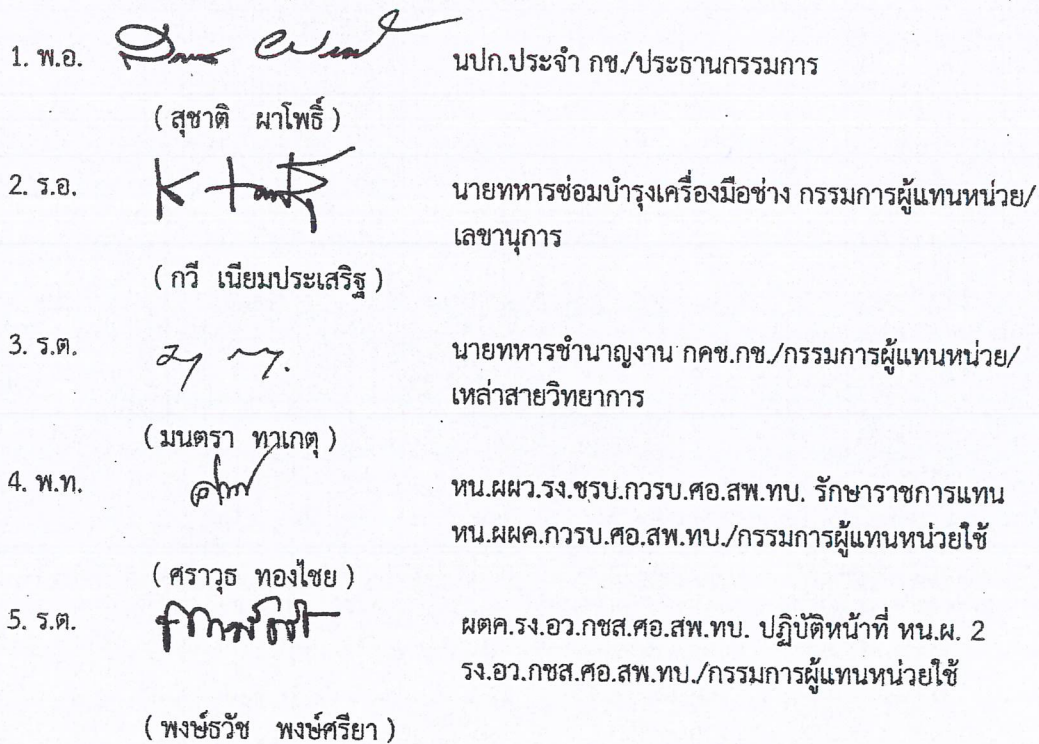 1. พ.อ. นปก.ประจำ กช./ประธานกรรมการ
( สุชาติ ผาโพธิ์ )
2. ร.อ. นายทหารซ่อมบำรุงเครื่องมือช่าง กรรมการผู้แทนหน่วย/
เลขานุการ
( กวี เนียมประเสริฐ )
3. ร.ต. นายทหารชำนาญงาน กคช.กช./กรรมการผู้แทนหน่วย/
เหล่าสายวิทยาการ
( มนตรา ทาเกตุ )
4. พ.ท. หน.ผผว.รง.ซรบ.กวรบ.ศอ.สพ.ทบ. รักษาราชการแทน
หน.ผผค.กวรบ.ศอ.สพ.ทบ./กรรมการผู้แทนหน่วยใช้
( ศราวุธ ทองไชย )
5. ร.ต. ผตค.รง.อว.กซส.ศอ.สพ.ทบ. ปฏิบัติหน้าที่ หน.ผ. 2
รง.อว.กซส.ศอ.สพ.ทบ./กรรมการผู้แทนหน่วยใช้
( พงษ์ธวัช พงษ์ศรียา )